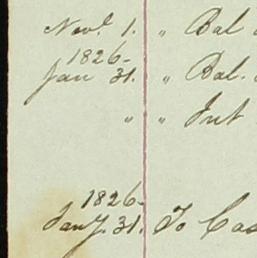 Novr 1. " Bal
1826-
Jan 31. " Bal.
" " Int
1826-
Jany. 31. To Cas